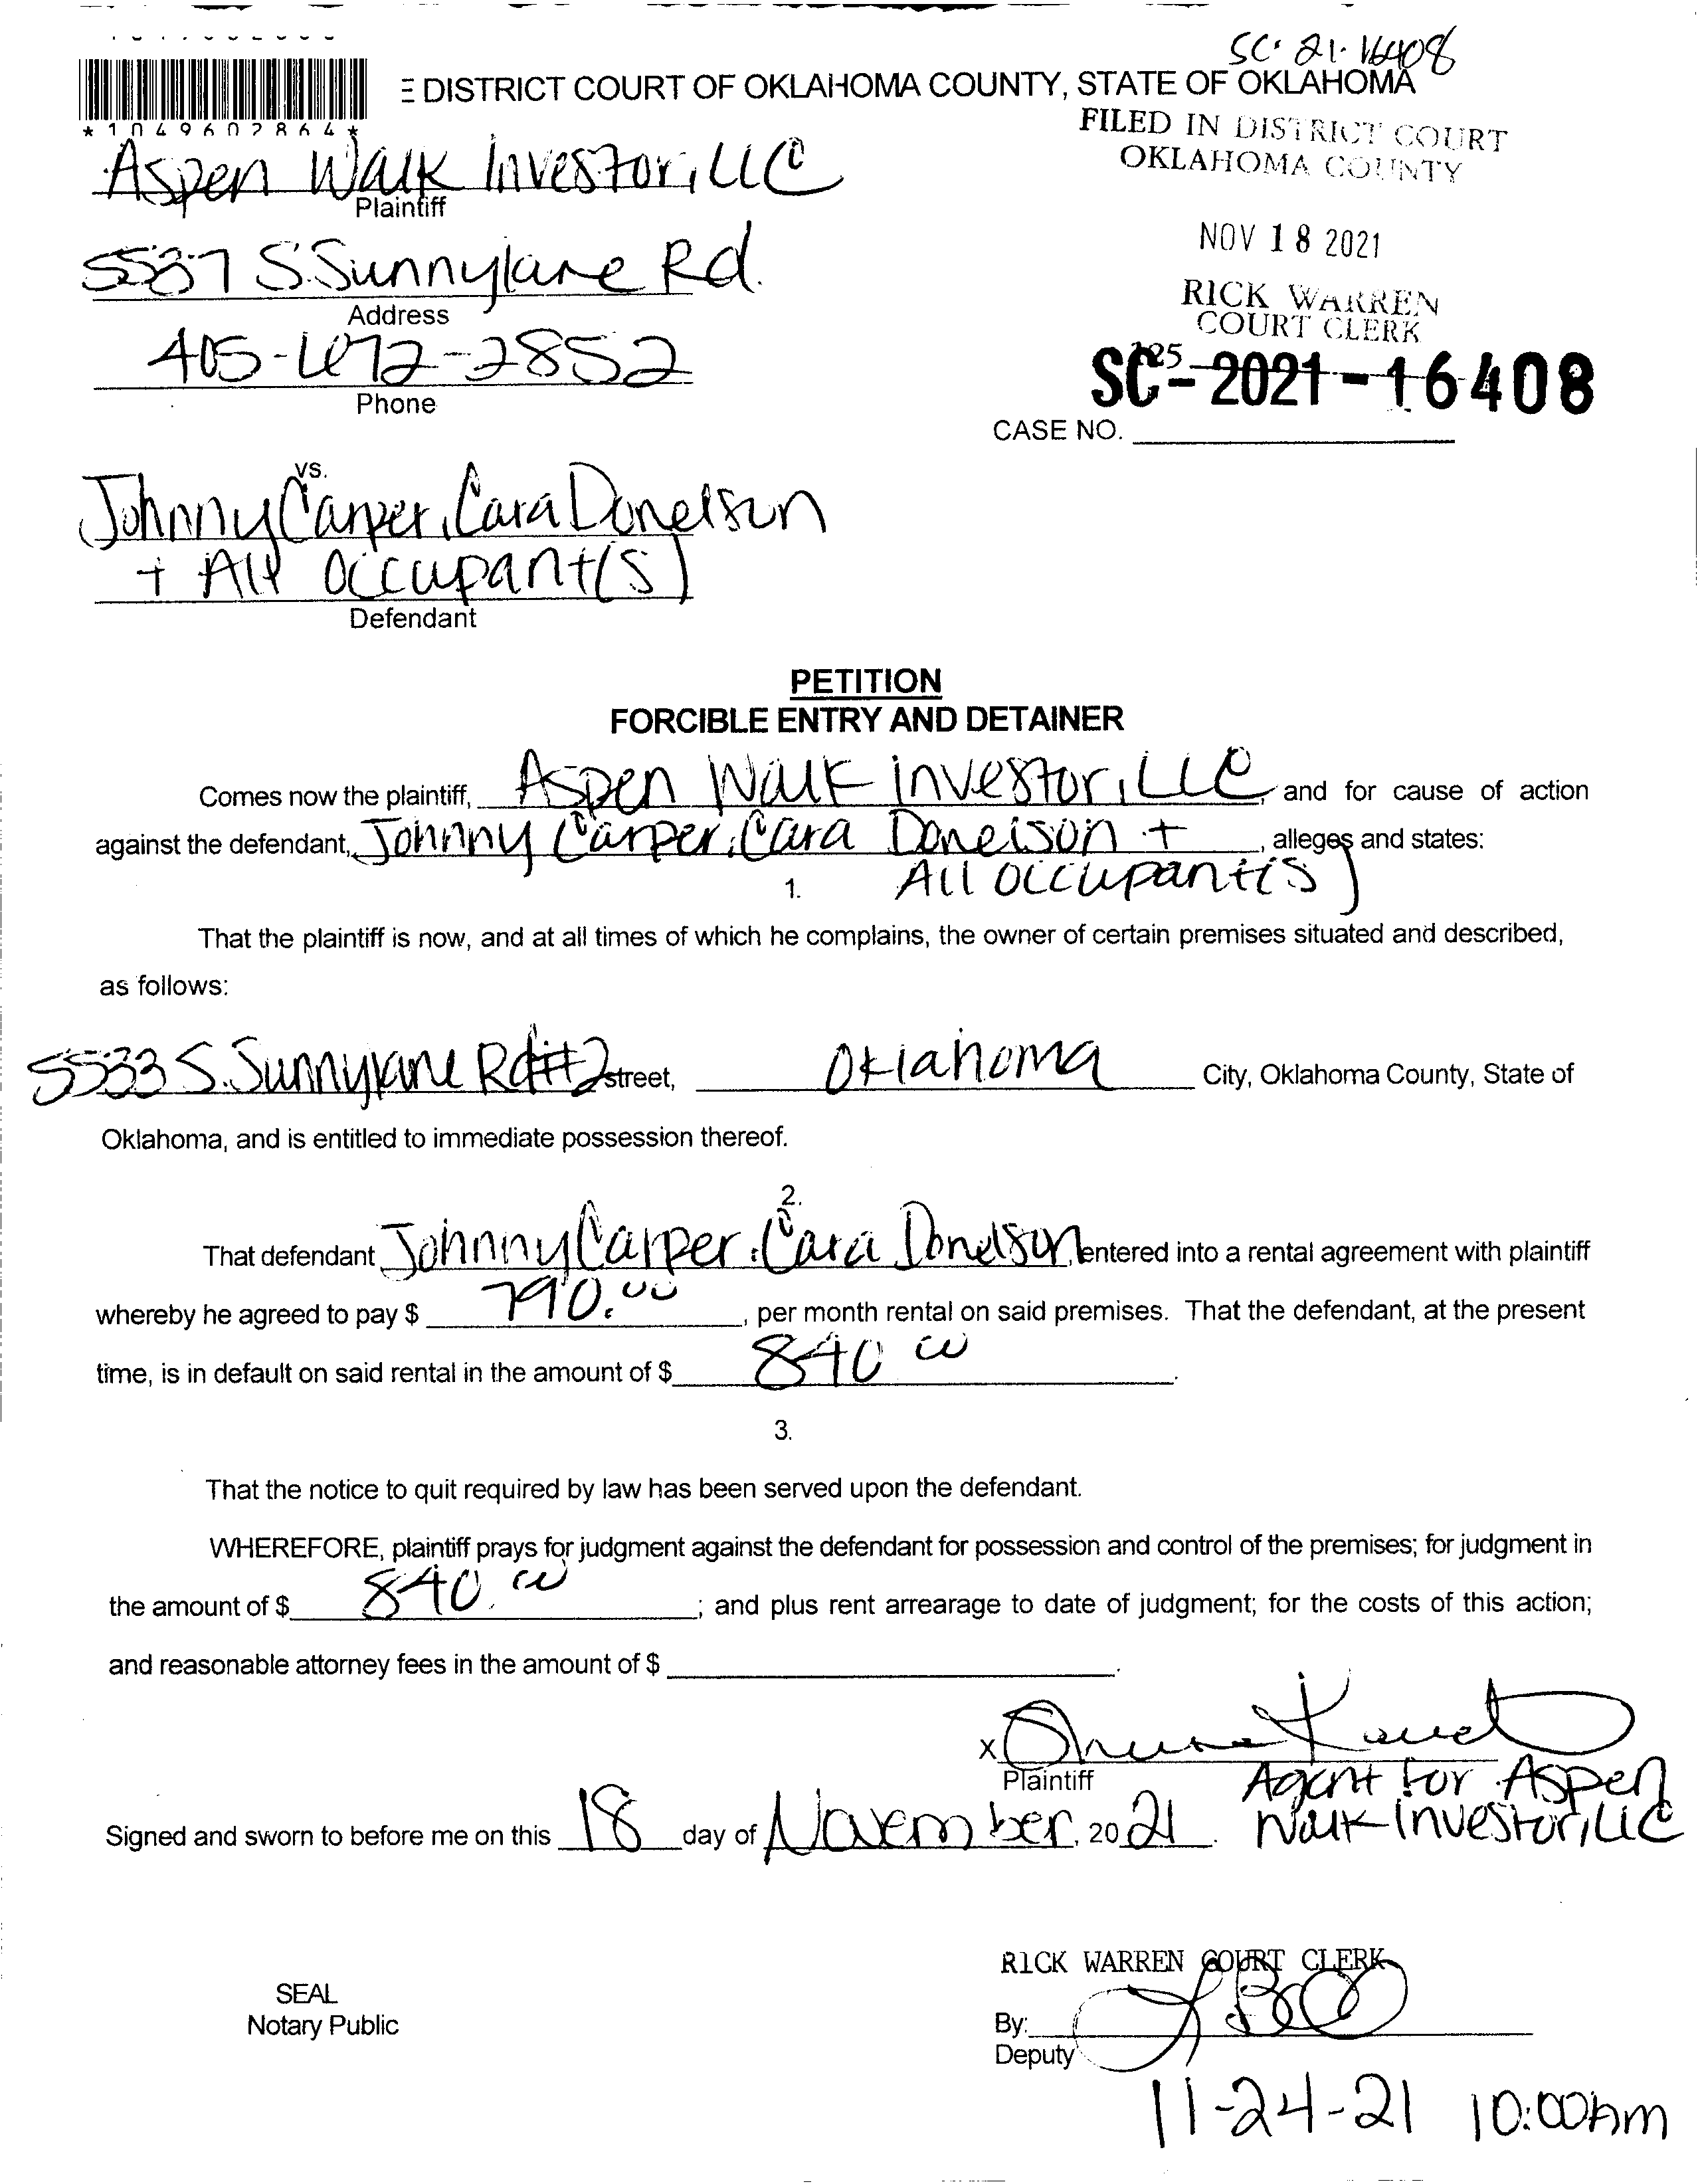 SC-21-16408
E DISTRICT COURT OF OKLAHOMA COUNTY, STATE OF OKLAHOMA
*1049602864*
FILED IN DISTRICT COURT
OKLAHOMA COUNTY
Aspen Walk Investor, LLC
Plaintiff
NOV 18 2021
5537 S. Sunnylane Rd.
Address
RICK WARREN
COURT CLERK
405-672-2852
Phone
125
SC-2021-16408
CASE NO.
vs.
Johnny Carper, Cara Donelson
+ All Occupant(s)
Defendant
PETITION
FORCIBLE ENTRY AND DETAINER
Comes now the plaintiff, Aspen Walk investor, LLC, and for cause of action
against the defendant, Johnny Carper, Cara Donelson + , alleges and states:
1. All occupant(s)
That the plaintiff is now, and at all times of which he complains, the owner of certain premises situated and described,
as follows:
5533 S. Sunnylane Rd #2 street, Oklahoma City, Oklahoma County, State of
Oklahoma, and is entitled to immediate possession thereof.
2.
That defendant Johnny Carper, Cara Donelson, entered into a rental agreement with plaintiff
whereby he agreed to pay $ 790.00, per month rental on said premises. That the defendant, at the present
time, is in default on said rental in the amount of $ 840 00.
3.
That the notice to quit required by law has been served upon the defendant.
WHEREFORE, plaintiff prays for judgment against the defendant for possession and control of the premises; for judgment in
the amount of $ 840.00; and plus rent arrearage to date of judgment; for the costs of this action;
and reasonable attorney fees in the amount of $ .
X
Plaintiff
Agent for Aspen
Walk Investor, LLC
Signed and sworn to before me on this 18 day of November, 2021.
RICK WARREN COURT CLERK
SEAL
Notary Public
By:
Deputy
11-24-21 10:00Am